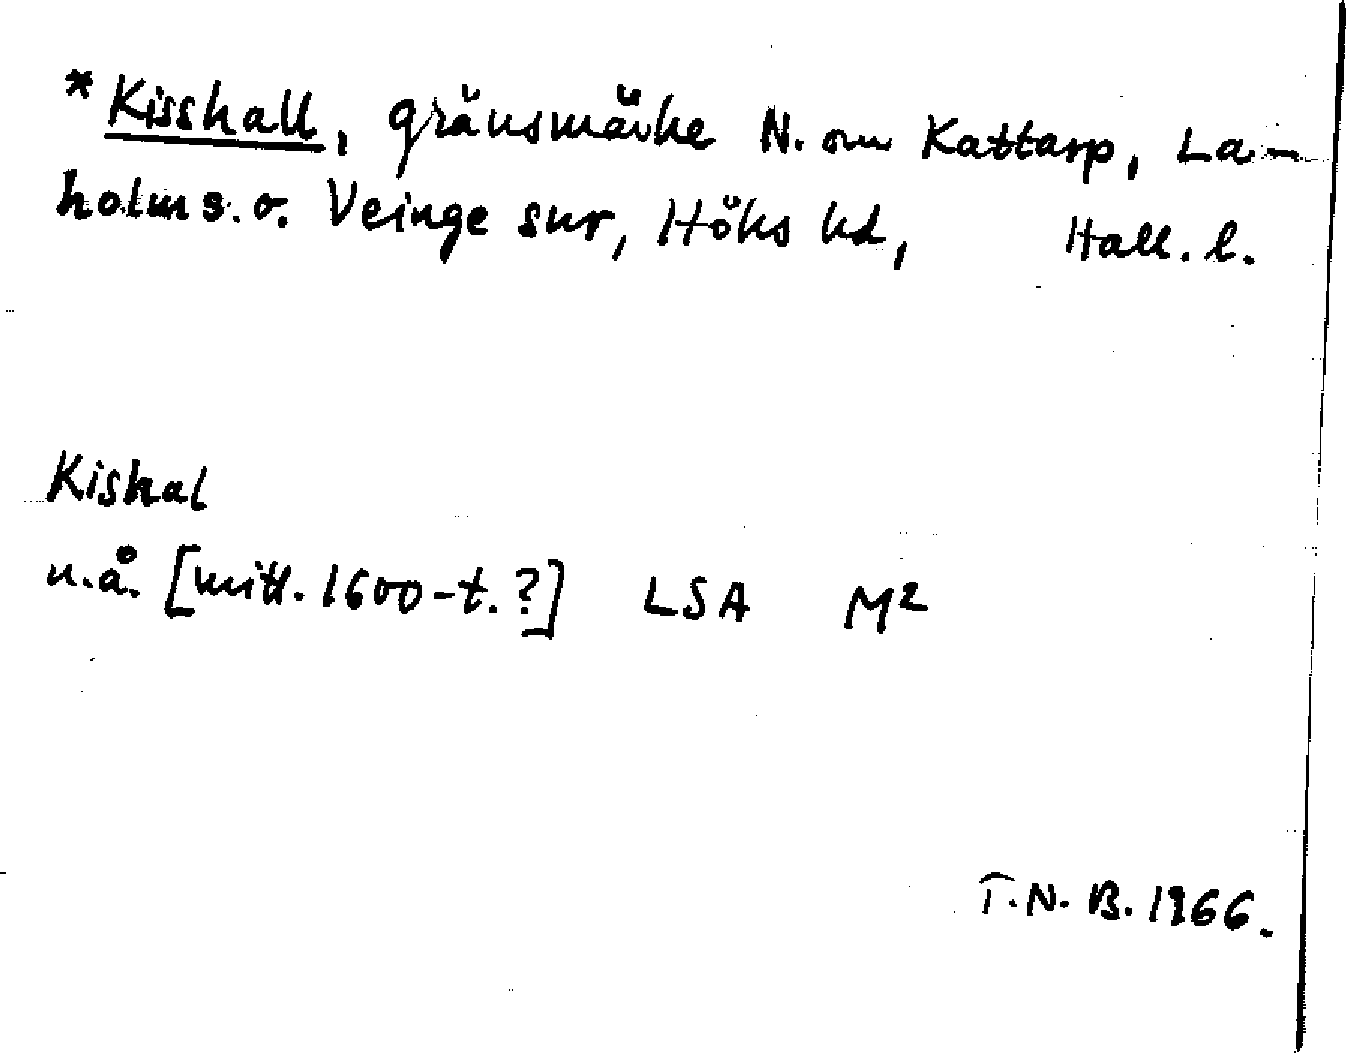 *Kisshall, gränsmärke N. om Kattarp, La-
holms. o. Veinge snr, Höks hd, Hall. l.
Kishal
u.å. [mitt. 1600-t.?] LSA M2
T.N.B. 1966.